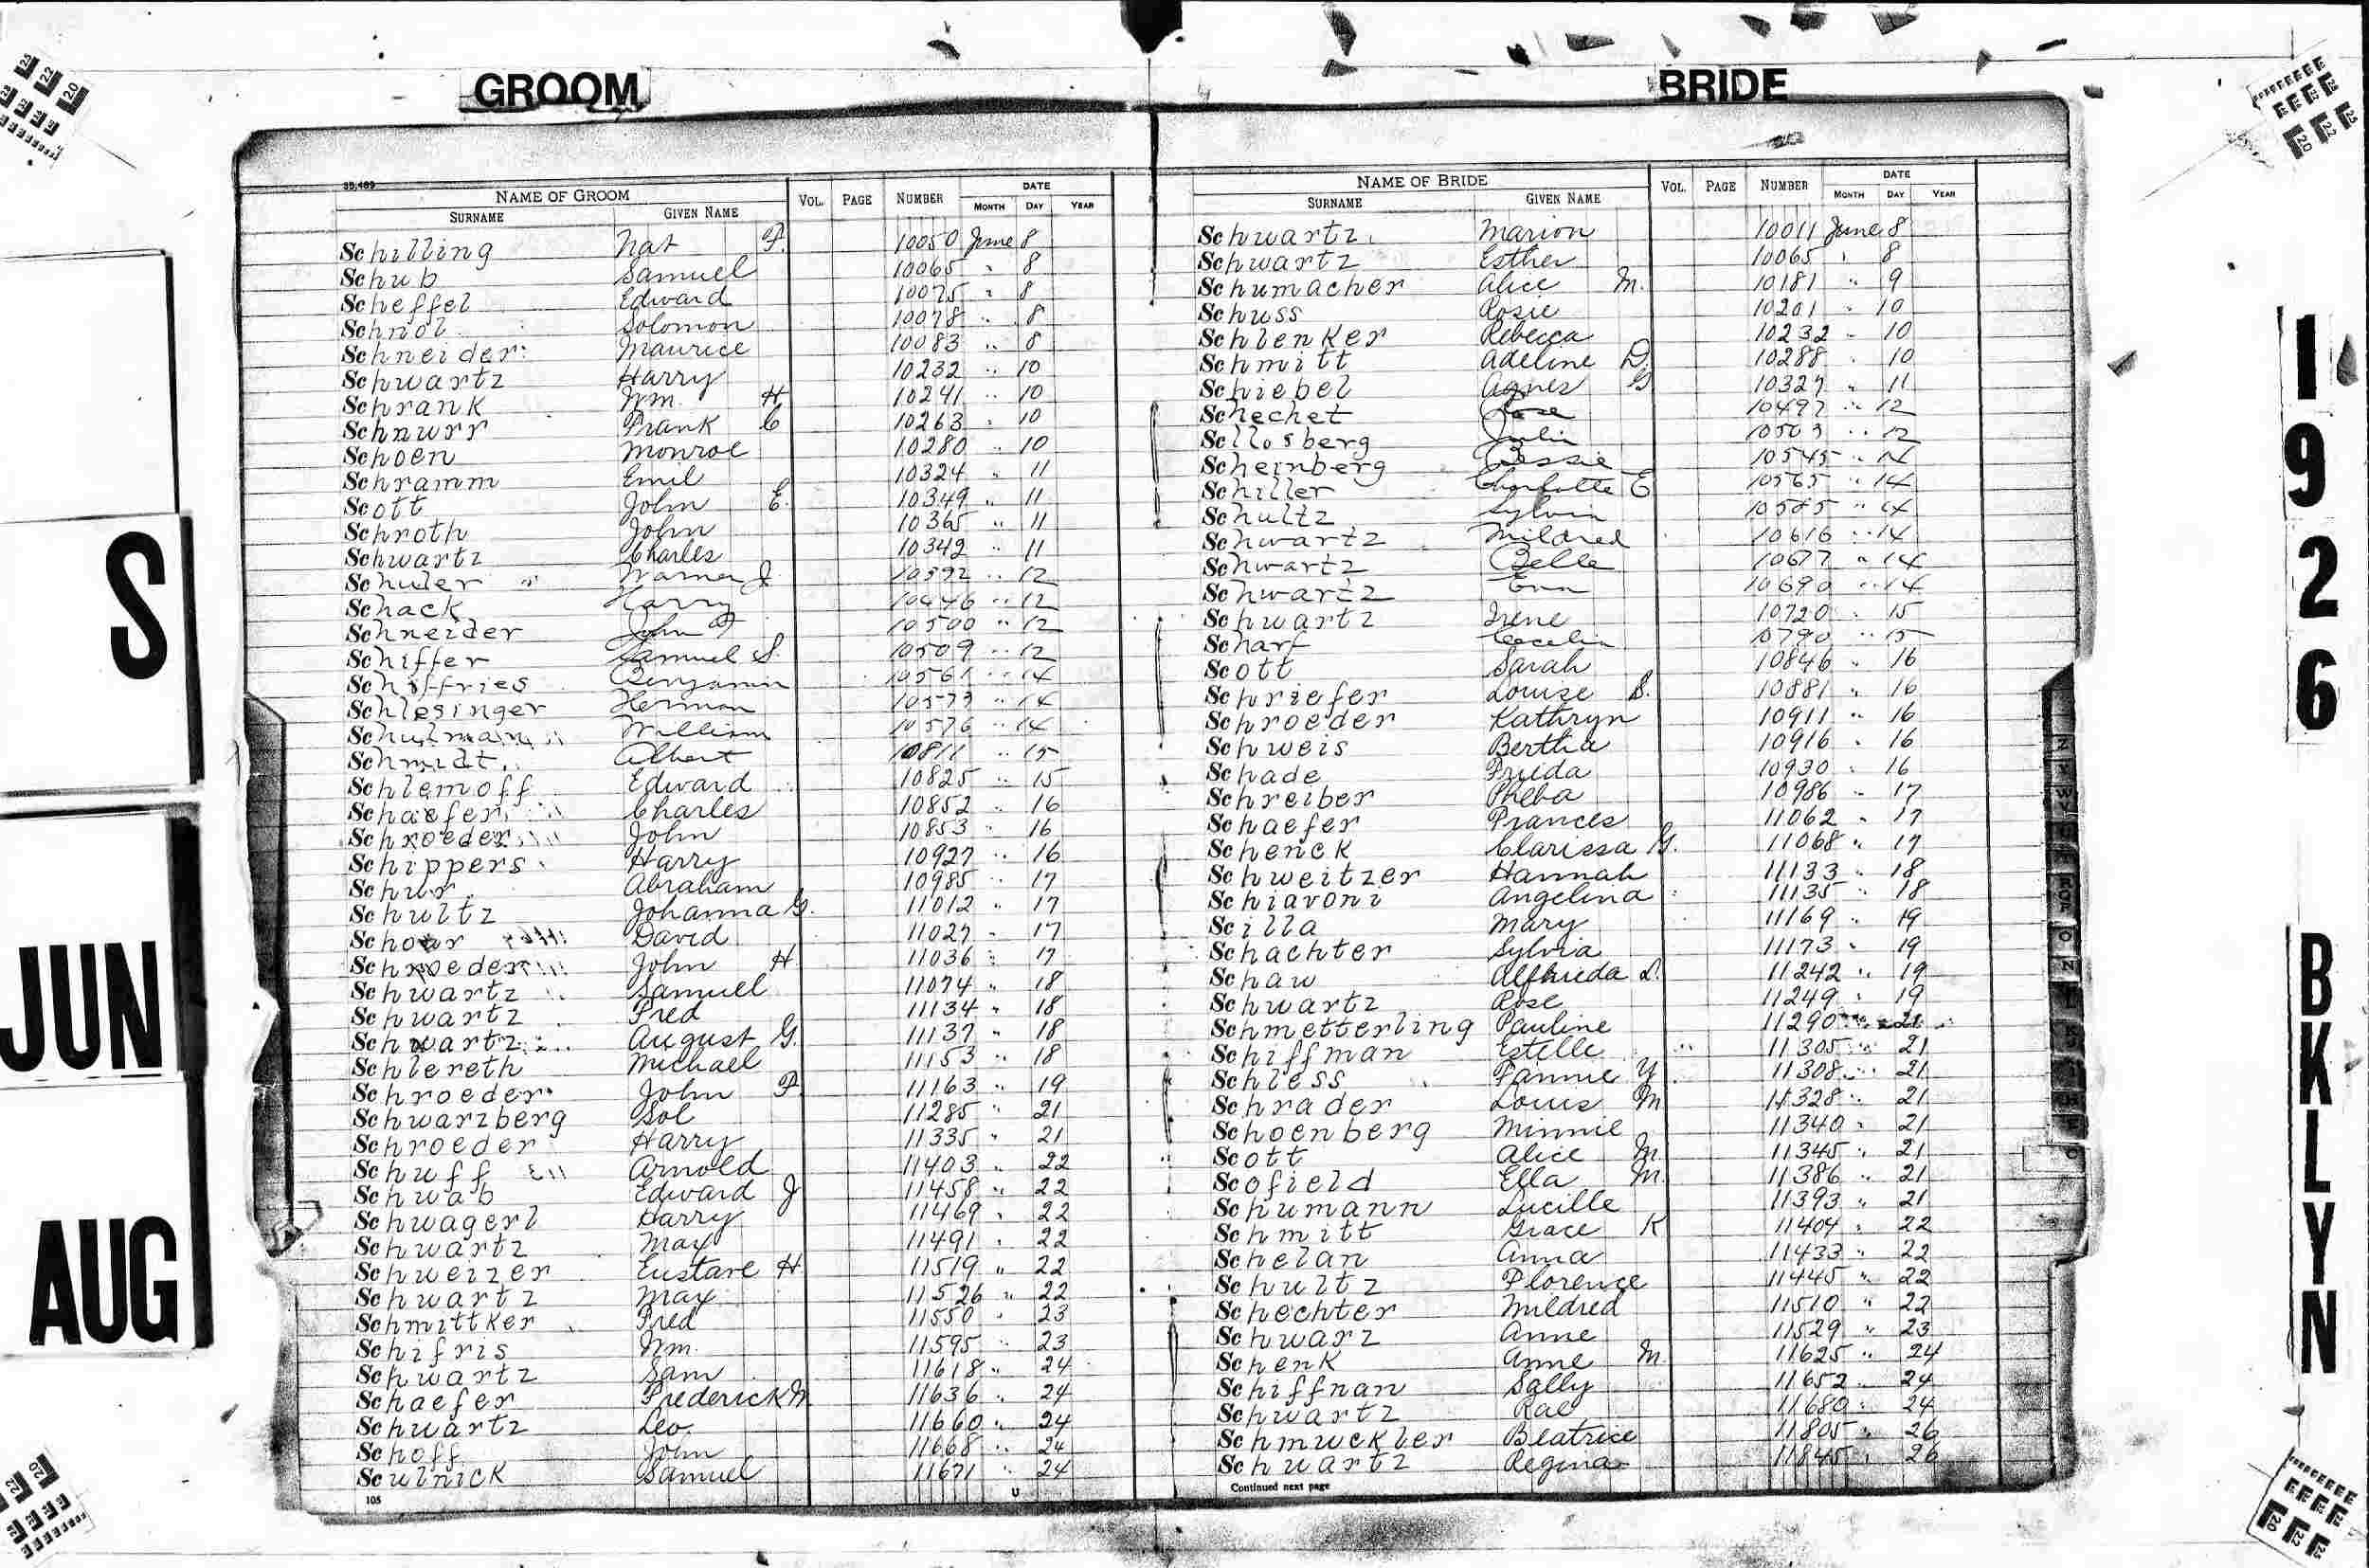 GROOM
BRIDE
1926
BKLYN
S
JUN
AUG
NAME OF GROOM VOL. PAGE NUMBER DATE
SURNAME GIVEN NAME MONTH DAY YEAR
Schilling Nat F. 10050 June 8
Schub Samuel 10065 " 8
Scheffel Edward 10075 " 8
Schnol Solomon 10078 " 8
Schneider Maurice 10083 " 8
Schwartz Harry 10232 " 10
Schrank Wm. H 10241 " 10
Schnurr Frank C 10263 " 10
Schoen Monroe 10280 " 10
Schramm Emil 10324 " 11
Scott John E. 10349 " 11
Schroth John 10365 " 11
Schwartz Charles 10342 " 11
Schuler Warner J 10392 " 12
Schack Harry 10446 " 12
Schneider John F 10500 " 12
Schiffer Samuel S. 10509 " 12
Schiffries Benjamin 10561 " 14
Schlesinger Herman 10573 " 14
Schulman William 10576 " 14
Schmidt Albert 10811 " 15
Schlemoff Edward 10825 " 15
Schaefer Charles 10852 " 16
Schroeder John 10853 " 16
Schippers Harry 10927 " 16
Schur Abraham 10985 " 17
Schultz Johanna G. 11012 " 17
Schorr David 11027 " 17
Schroeder John H 11036 " 17
Schwartz Samuel 11074 " 18
Schwartz Fred 11134 " 18
Schwartz August G. 11137 " 18
Schlereth Michael 11153 " 18
Schroeder John F. 11163 " 19
Schwarzberg Sol 11285 " 21
Schroeder Harry 11335 " 21
Schuff Arnold 11403 " 22
Schwab Edward J 11458 " 22
Schwagerl Harry 11469 " 22
Schwartz Max 11491 " 22
Schweizer Eustave H. 11519 " 22
Schwartz Max 11526 " 22
Schmittker Fred 11550 " 23
Schifris Wm. 11595 " 23
Schwartz Sam 11618 " 24
Schaefer Frederick W. 11636 " 24
Schwartz Leo. 11660 " 24
Schoff John 11668 " 24
Sculnick Samuel 11671 " 24
105
U
NAME OF BRIDE VOL. PAGE NUMBER DATE
SURNAME GIVEN NAME MONTH DAY YEAR
Schwartz Marion 10011 June 8
Schwartz Esther 10065 " 8
Schumacher Alice M. 10181 " 9
Schuss Rosie 10201 " 10
Schlenker Rebecca 10232 " 10
Schmitt Adeline D. 10288 " 10
Schiebel Agnes G 10327 " 11
Schechet Rose 10497 " 12
Scllosberg Julia 10503 " 12
Scheinberg Bessie 10545 " 14
Schiller Charlotte E 10565 " 14
Schultz Sylvia 10585 " 14
Schwartz Mildred 10616 " 14
Schwartz Belle 10677 " 14
Schwartz Eva 10690 " 14
Schwartz Irene 10720 " 15
Scharf Cecelia 10790 " 15
Scott Sarah 10846 " 16
Schriefer Louise B. 10881 " 16
Schroeder Kathryn 10911 " 16
Schweis Bertha 10916 " 16
Schade Frieda 10930 " 16
Schreiber Pheba 10986 " 17
Schaefer Frances 11062 " 17
Schenck Clarissa G. 11068 " 17
Schweitzer Hannah 11133 " 18
Schiavoni Angelina 11135 " 18
Scilla Mary 11169 " 19
Schachter Sylvia 11173 " 19
Schaw Alfrieda D. 11242 " 19
Schwartz Rose 11249 " 19
Schmetterling Pauline 11290 21
Schiffman Estelle 11305 " 21
Schless Fannie Y 11308 " 21
Schrader Louis M 11328 " 21
Schoenberg Minnie 11340 " 21
Scott Alice M 11345 " 21
Scofield Ella M. 11386 " 21
Schumann Lucille 11393 " 21
Schmitt Grace K 11404 " 22
Schelan Anna 11433 " 22
Schultz Florence 11445 " 22
Schechter Mildred 11510 " 22
Schwarz Anne 11529 " 23
Schenk Anne M 11625 " 24
Schiffnan Sally 11652 " 24
Schwartz Rae 11680 " 24
Schmuckler Beatrice 11805 " 26
Schwartz Regina 11845 " 26
Continued next page